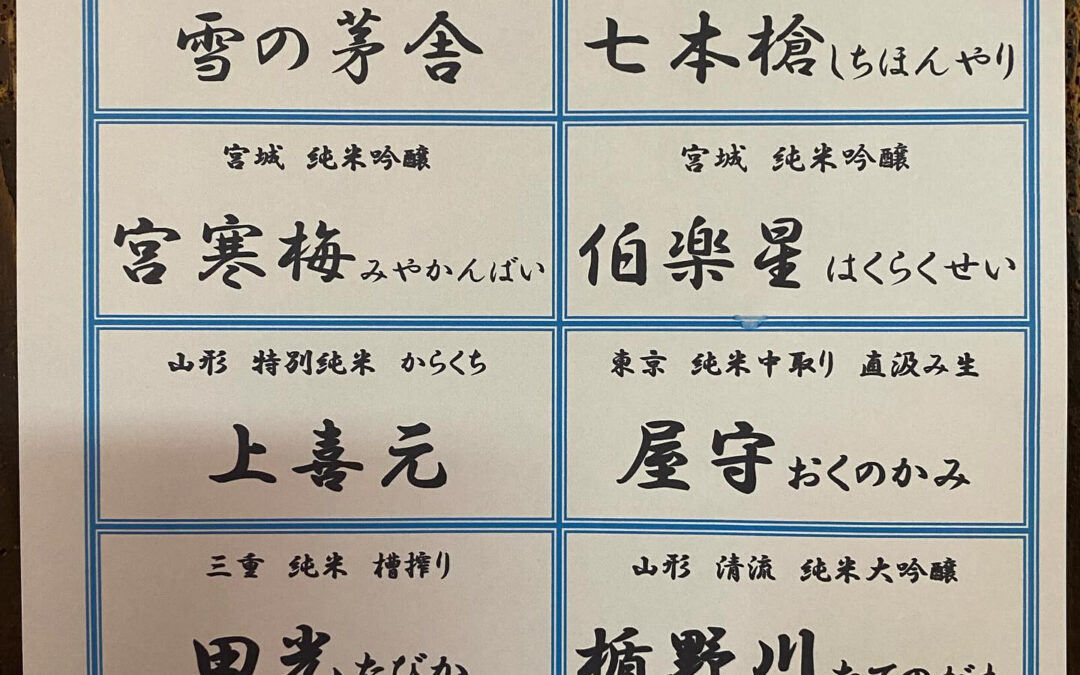 雪の茅舎
七本槍しちほんやり
宮城 純米吟醸
宮寒梅みやかんばい
宮城 純米吟醸
伯楽星はくらくせい
山形 特別純米 からくち
上喜元
東京 純米中取り 直汲み生
屋守おくのかみ
三重 純米 槽搾り
田光たびか
山形 清流 純米大吟醸
楯野川たてのがわ